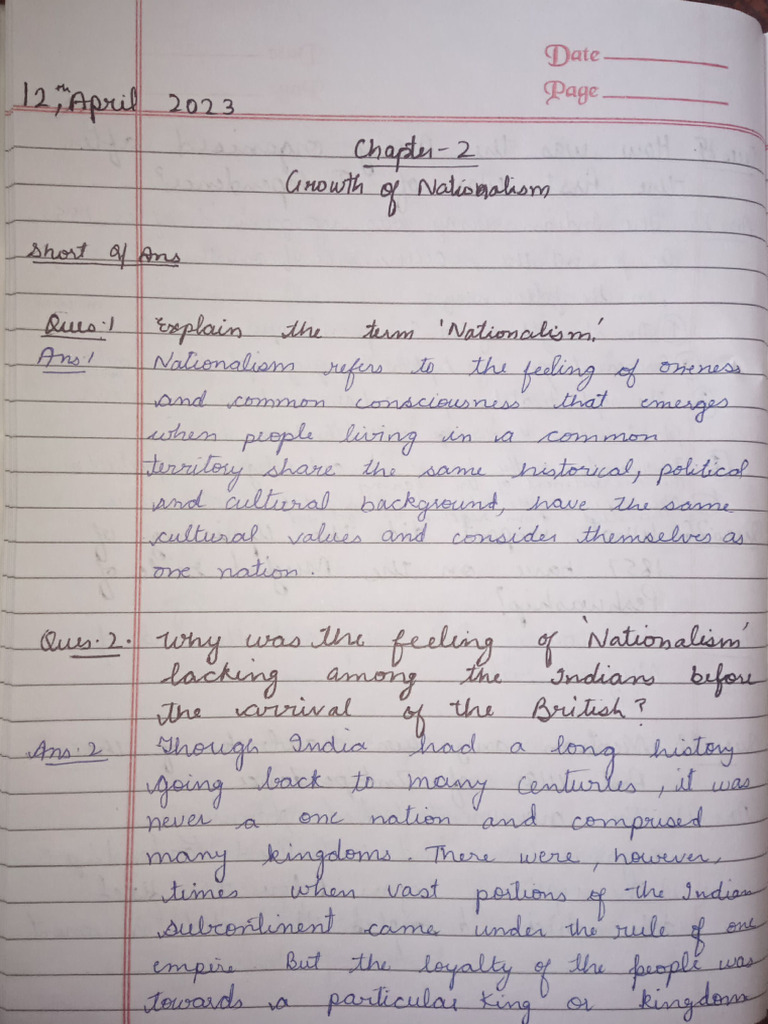 Date
Page
12,th April 2023
Chapter-2
Growth of Nationalism
Short Q/ Ans
Ques:1 Explain the term 'Nationalism.'
Ans:1 Nationalism refers to the feeling of oneness
and common consciousness that emerges
when people living in a common
territory share the same historical, political
and cultural background, have the same
cultural values and consider themselves as
one nation.
Ques. 2. Why was the feeling of 'Nationalism'
lacking among the Indians before
the arrival of the British?
Ans. 2 Though India had a long history
going back to many centuries, it was
never a one nation and comprised
many kingdoms. There were, however,
times when vast portions of the Indian
subcontinent came under the rule of one
empire. But the loyalty of the people was
towards a particular king or kingdom